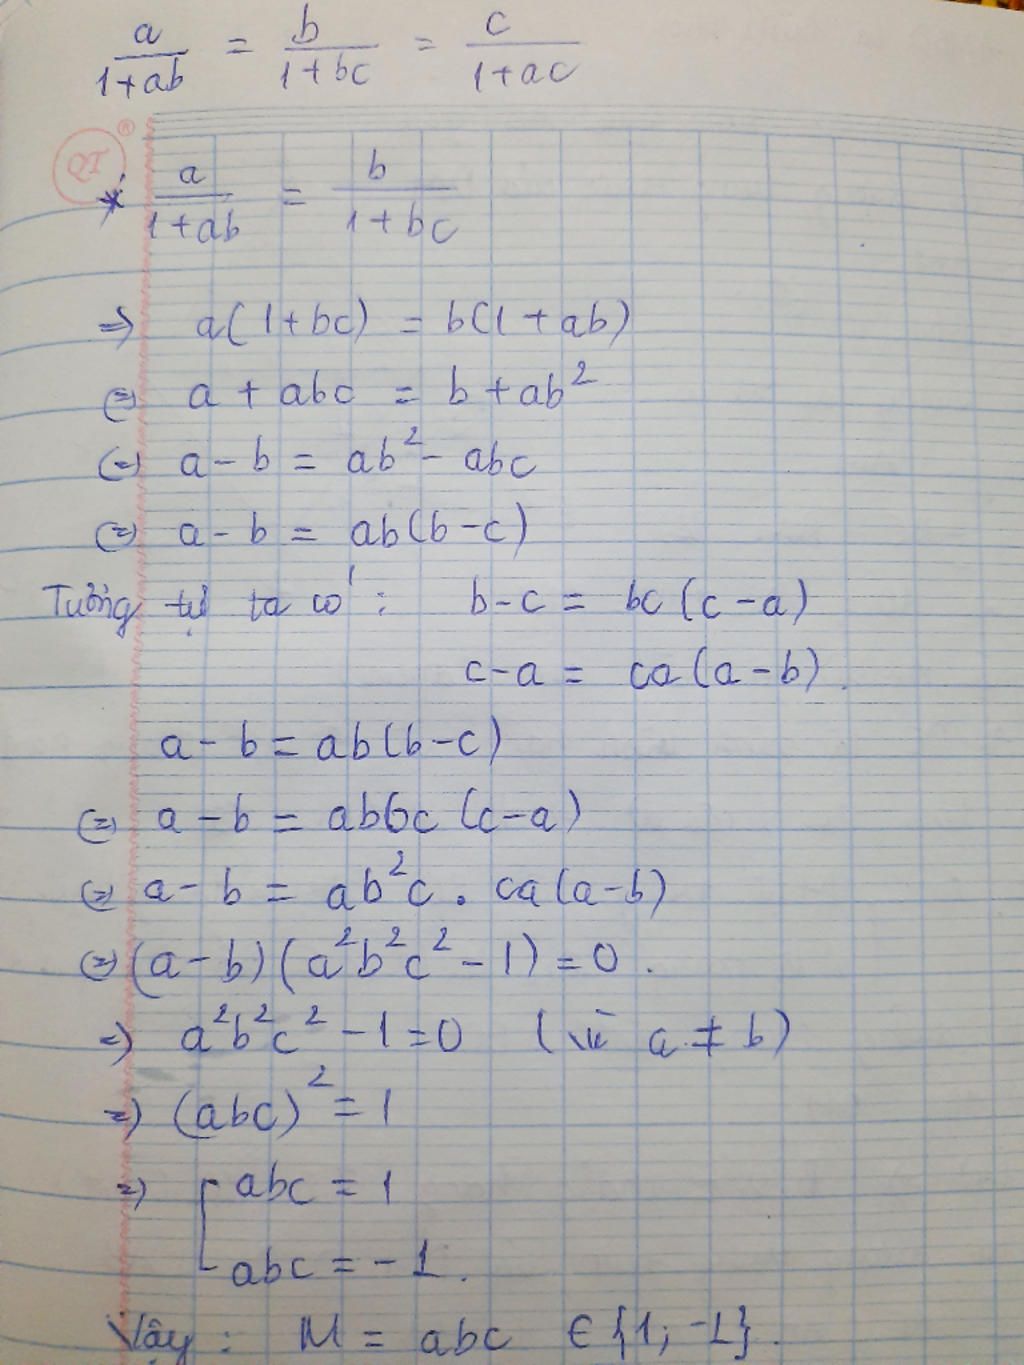 a/(1+ab) = b/(1+bc) = c/(1+ac)
QT ®
* a/(1+ab) = b/(1+bc)
⇒ a(1+bc) = b(1+ab)
⇔ a + abc = b + ab²
⇔ a - b = ab² - abc
⇔ a - b = ab(b-c)
Tương tự ta có : b-c = bc(c-a)
c-a = ca(a-b).
a-b = ab(b-c)
⇔ a-b = abbc(c-a)
⇔ a-b = ab²c . ca(a-b)
⇔ (a-b)(a²b²c²-1) = 0.
⇒ a²b²c² - 1 = 0 (vì a ≠ b)
⇒ (abc)² = 1
⇒ [ abc = 1
abc = -1.
Vậy : M = abc ∈ {1; -1}.